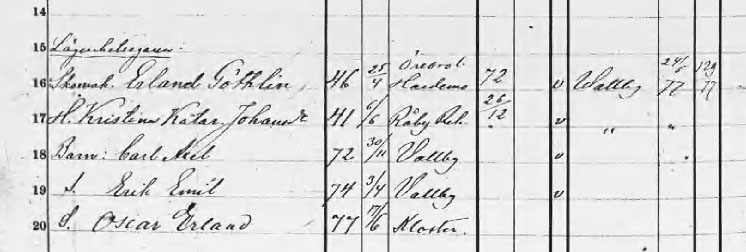 14
15 Lägenhetsegaren:
Örebro l. 24/5 129
16 Skomak. Erland Göthlin 46 25/4 Hardemo 72 v Vallby 77 77
26/12
17 H. Kristina Katar. Johansdr 41 6/6 Råby Rek. v " "
18 Barn: Carl Axel 72 30/11 Vallby v
19 S. Erik Emil 74 3/4 Vallby v
20 S. Oscar Erland 77 17/6 Kloster.